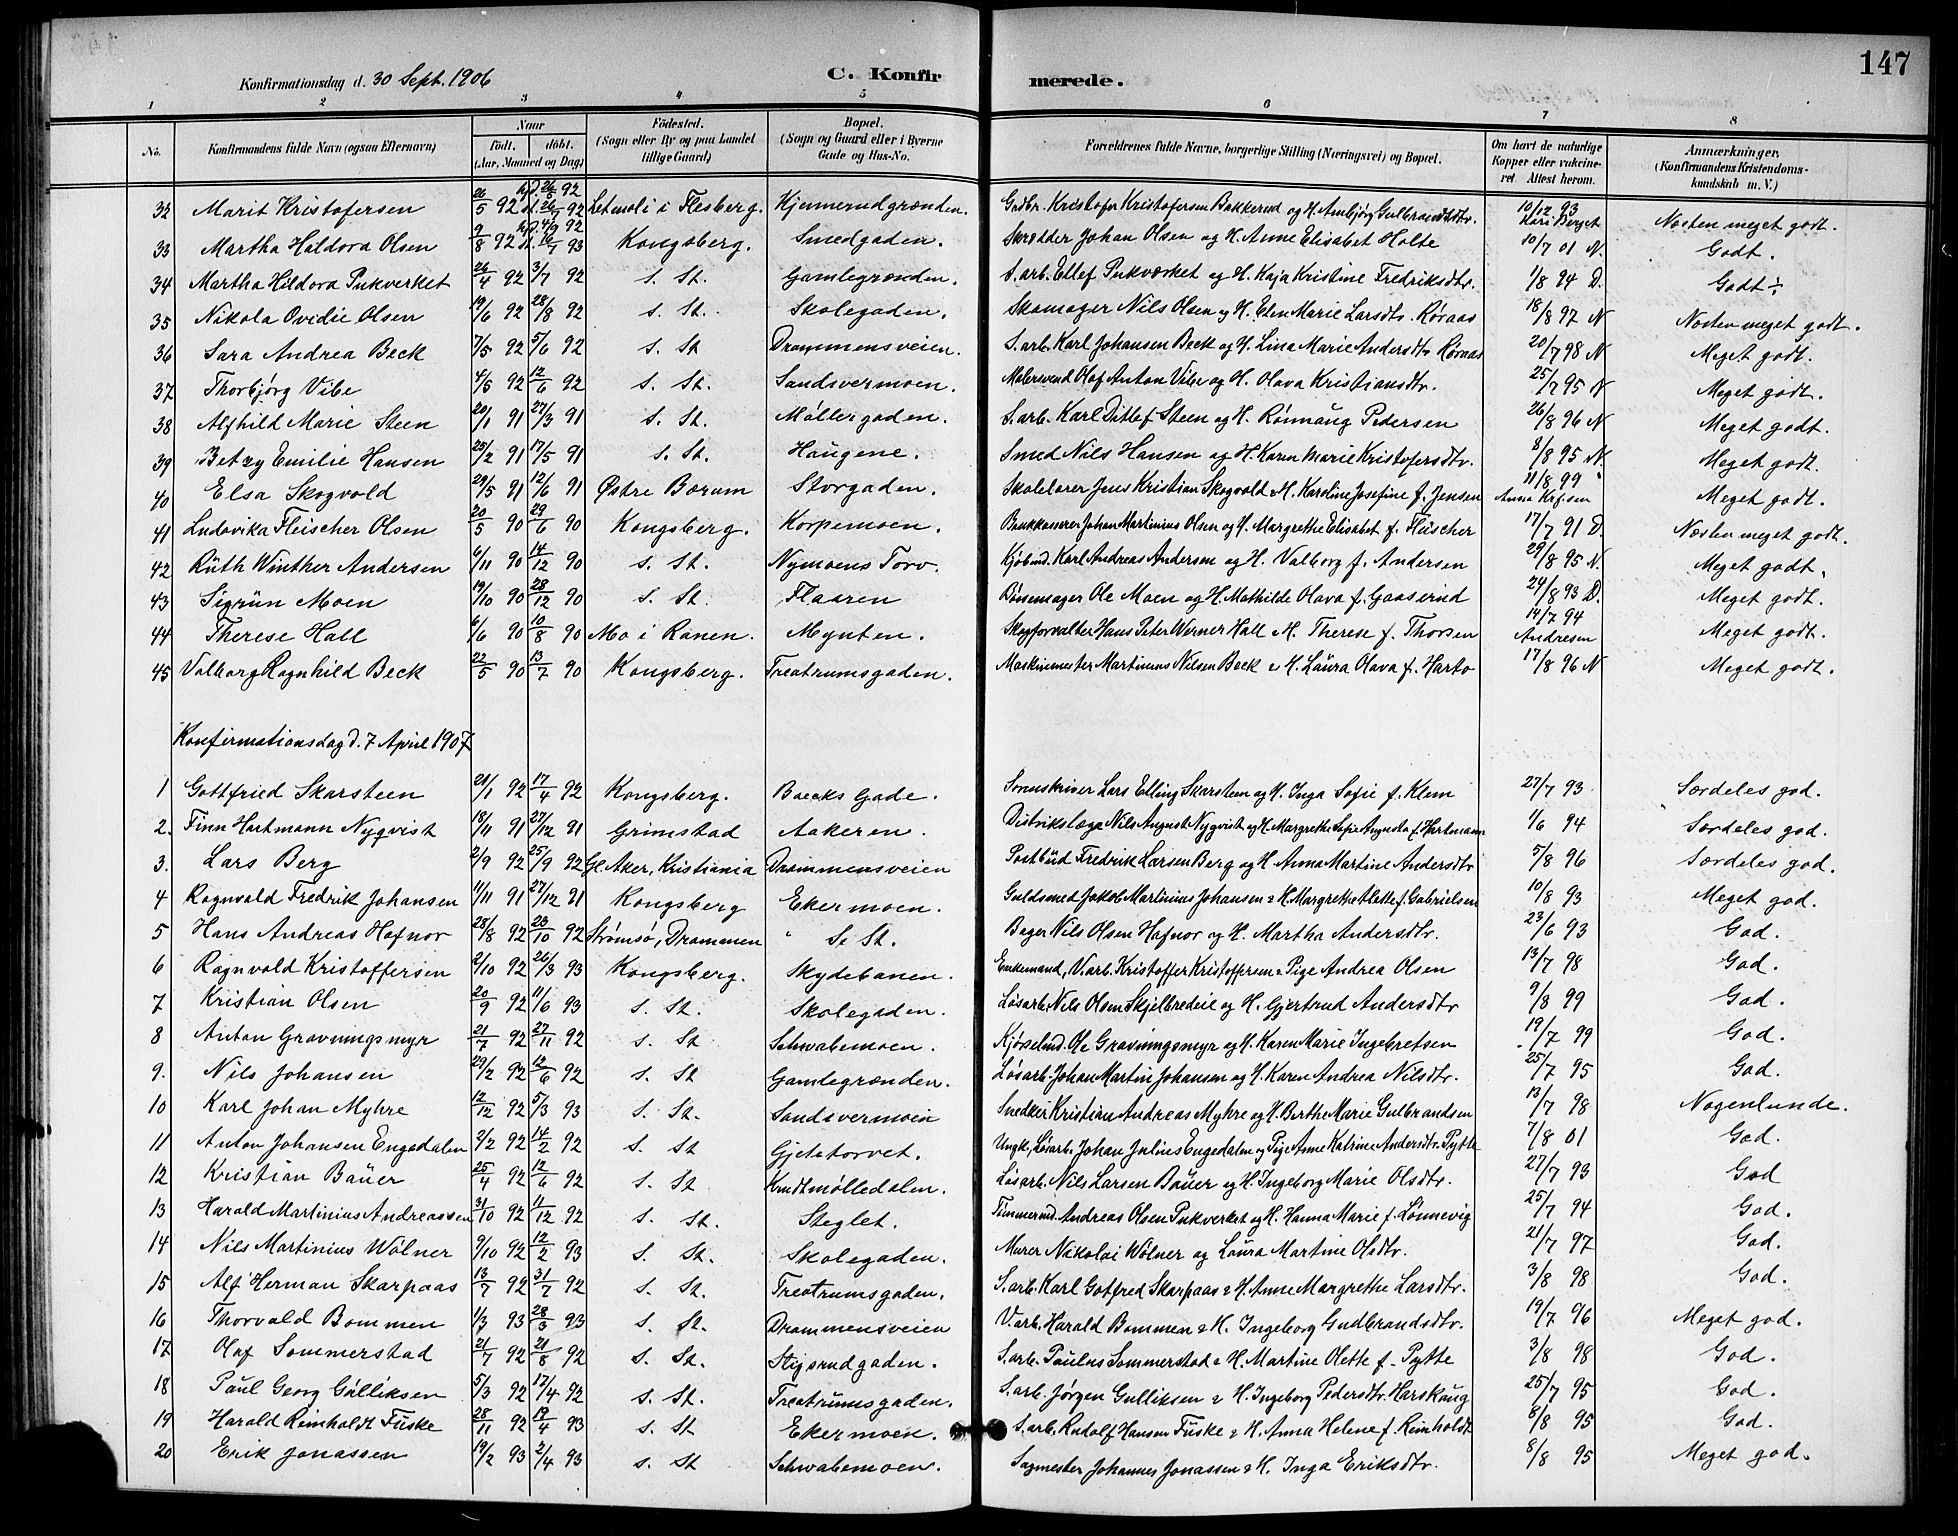 147
Konfirmationsdag d. 30 Sept. 1906 C. Konfirmerede.
1 2 3 4 5 6 7 8
No. Konfirmandens fulde Navn (ogsaa Efternavn) Naar født. døbt. (Aar, Maaned og Dag) Fødested. (Sogn eller By og paa Landet tillige Gaard) Bopæl. (Sogn og Gaard eller i Byerne Gade og Hus-No. Forældrenes fulde Navne, borgerlige Stilling (Næringsvei) og Bopæl. Om havt de naturlige Kopper eller vakcineret Attest herom. Anmærkninger. (Konfirmandens Kristendomskundskab m. V.)
32 Marit Kristofersen 26/5 92 hjd. 26/5 92 Letmoli i Flesberg. Kjennerudgrænden. Grdbr. Kristofer Kristofersen Bakkerud og H. Ambjørg Gulbrandsdtr. 10/12 93 Kari Berget Næsten meget godt.
33 Martha Haldora Olsen 9/8 92 hjd. 4/9 92 Kongsberg. Smedgaden. Skrædder Johan Olsen og H. Anne Elisabet Holte 10/7 01 N. Godt.
34 Martha Hildora Pukverket 26/4 92 3/7 92 s. St. Gamlegrænden. S. arb. Ellef Pukværket og H. Kaja Kristine Fredriksdtr. 1/8 94 D. Godt ÷
35 Nikola Ovidie Olsen 19/6 92 28/8 92 s. St. Skolegaden. Skomager Nils Olsen og H. Elen Marie Larsdtr. Røraas 18/8 97 N Næsten meget godt.
36 Sara Andrea Beck 7/5 92 5/6 92 s. St Drammensveien. S. arb. Karl Johansen Beck og H. Lina Marie Andersdtr Røraas 20/7 98 N Meget godt.
37 Thorbjørg Vibe 4/5 92 12/6 92 s. St. Sandsvermoen. Malersvend Olaf Anton Vibe og H. Olava Kristiansdtr. 25/7 95 N Meget godt.
38 Alfhild Marie Steen 20/1 91 27/3 91 s. St. Møllergaden. S. arb. Karl Ditlef Steen og H. Rønnaug Pedersen 26/8 96 N Meget godt.
39 Betzy Emilie Hansen 25/2 91 17/5 91 s. St. Haugene. Smed Nils Hansen og H. Karen Marie Kristofersdtr. 8/8 95 N. Meget godt.
40 Elsa Skogvold 29/5 91 12/6 91 Østre Bærum Storgaden. Skolelærer Jens Kristian Skogvold & H. Karoline Josefine f. Jensen 11/8 99 Anna Meget godt.
41 Ludovika Fleischer Olsen 20/5 90 29/6 90 Kongsberg. Korpemoen. Brukkasserer Johan Martinius Olsen og H. Margrethe Elisabet f. Fleischer 17/7 91 D. Næsten meget godt.
42 Ruth Winther Andersen 6/11 90 14/12 90 s. St. Nymoens Torv. Kjøbmd. Karl Andreas Andersen og H. Valborg f. Andersen 29/8 95 N. Meget godt.
43 Sigrun Moen 19/10 90 28/12 90 s. St. Flaaren Bøsemager Ole Moen og H. Mathilde Olava f. Gaaserud 24/8 93 D. Meget godt.
44 Therese Hall 6/6 90 10/8 90 Mo i Ranen. Mynten. Skogforvalter Hans Peter Werner Hall & H. Therese f. Thorsen 14/7 94 Andresen Meget godt.
45 Valborg Ragnhild Beck 22/5 90 13/7 90 Kongsberg. Treatrumsgaden. Maskinmester Martinius Nilsen Beck & H. Laura Olava f. Harto 17/8 96 N Meget godt.
Konfirmationsdag d. 7 April 1907
1 Gottfried Skarsteen 21/1 92 17/4 92 Kongsberg. Baecks Gade. Sorenskriver Lars Elling Skarsteen og H. Inga Sofie f. Klem 27/7 93 Særdeles god.
2. Finn Hartmann Nyqvist 18/11 91 27/12 91 Grimstad Aakeren. Distriktslæge Nils August Nyqvist og H. Margrethe Sofie Augusta f. Hartmann 1/6 94 Særdeles god.
3. Lars Berg 2/9 92 25/9 92 Gl. Aker, Kristiania Drammensveien Postbud Fredrik Larsen Berg og H. Anna Martine Andersdtr 5/8 96 Særdeles god.
4 Ragnvald Fredrik Johansen 11/11 91 27/12 91 Kongsberg Ekermoen. Guldsmed Jakob Martinius Johansen & H. Margrethe Alette f. Gabrielsen 10/8 93 Meget god.
5 Hans Andreas Hafnor 28/8 92 23/10 92 Strømsø, Drammen " S. St. Bager Nils Olsen Hafnor og H. Martha Andersdtr. 23/6 93 God.
6 Ragnvald Kristoffersen 2/10 92 26/3 93 Kongsberg. Skydebanen. Enkemand, V. arb. Kristoffer Kristoffersen & Pige Andrea Olsen 13/7 98 God.
7 Kristian Olsen 20/9 92 11/6 93 s. St. Skolegaden. Løsarb. Nils Olsen Skjelbredeie og H. Gjertrud Andersdtr 9/8 99 God.
8 Anton Gravningsmyr 21/7 92 27/11 92 s. St Schwabemoen. Kjørselmd. Ole Gravningsmyr og H. Karen Marie Ingebretsen 19/7 99 God.
9. Nils Johansen 29/2 92 12/6 92 s. St Gamlegrænden. Løsarb. Johan Martin Johansen og H. Karen Andrea Nilsdtr. 25/7 95 God.
10 Karl Johan Myhre 12/12 92 5/3 93 s. St. Sandsvermoen Snedker Kristian Andreas Myhre og H. Berthe Marie Gulbrandsen 13/7 98 Nogenlunde.
11 Anton Johansen Engedalen 2/2 92 14/2 92 s. St Gjetetorvet. Ungk, Løsarb. Johan Julius Engedalen og Pige Anne Katrine Andersdtr. Pytte 7/8 01 God.
12 Kristian Bauer 25/4 92 12/6 92 s. St Kruttmølledalen. Løsarb. Nils Larsen Bauer og H. Ingeborg Marie Olsdtr. 27/7 93 God
13 Harald Martinius Andreassen 31/10 92 11/12 92 s. St. Steglet. Tømmermd. Andreas Olsen Pukverket og H. Hanna Marie f. Lønnevig 25/7 94 God.
14 Nils Martinius Wølner 9/10 92 12/2 93 s. St. Skolegaden. Murer Nikolai Wølner og Laura Martine Olsdtr. 21/7 97 God.
15 Alf Herman Skarpaas 13/7 92 31/7 92 s. St. Treatrumsgaden. S. arb. Karl Gotfred Skarpaas & H. Anne Margrethe Larsdtr. 3/8 98 God.
16 Thorvald Bommen 1/3 93 28/3 93 s. St. Drammensveien V. arb. Harald Bommen & H. Ingeborg Gudbrandsdtr. 19/7 96 Meget god.
17 Olaf Sommerstad 21/7 92 21/8 92 s. St. Stigsrudgaden. S. arb. Paulus Sommerstad & H. Martine Olette f. Pytte 3/8 98 God.
18 Paul Georg Gulliksen 5/3 92 17/4 92 s. St. Treatrumsgaden. S. arb. Jørgen Gulliksen & H. Ingeborg Pedersdtr. Harskaug 25/7 95 God.
19 Harald Reinholdt Fuske 28/11 92 19/4 93 s. St Ekermoen. S. arb. Rudolf Hansen Fuske & H. Anna Helene f. Reinholdt 8/8 95 God.
20 Erik Jonassen 19/2 93 2/4 93 s. St Schwabemoen. Sagmester Johannes Jonassen & H. Inga Eriksdtr. 8/8 95 Meget god.